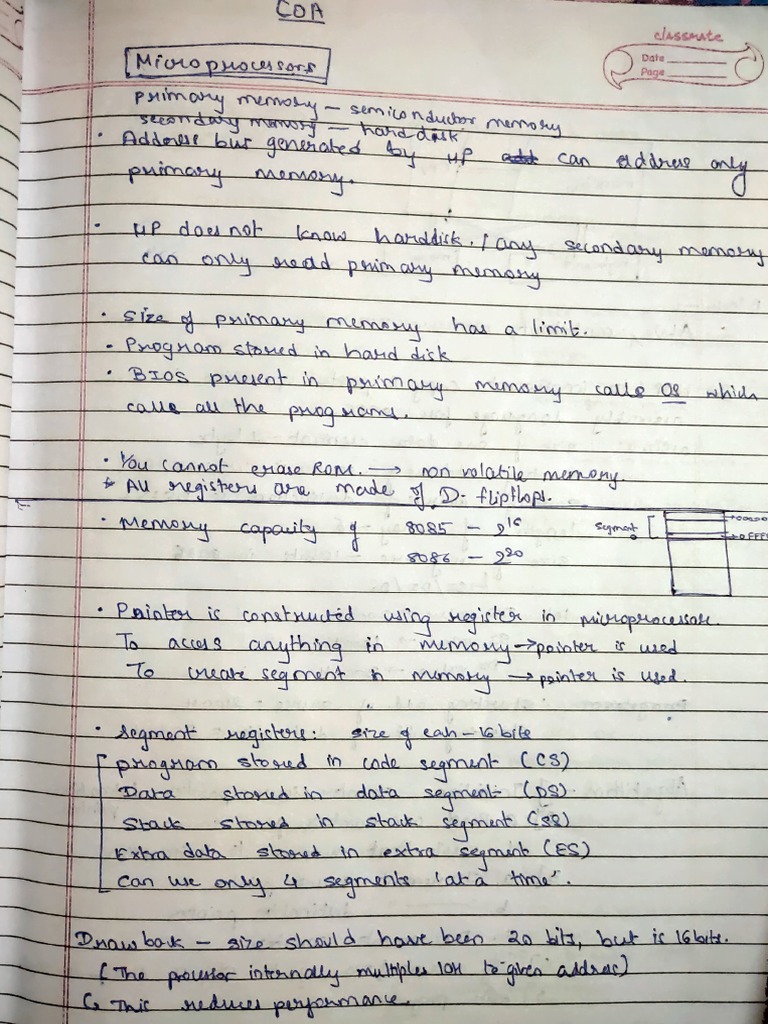 COA
classmate
Date
Page
Microprocessors
primary memory – semiconductor memory
secondary memory – hard disk
• Address bus generated by μP can address only
primary memory.
• μP does not know harddisk. / any secondary memory
can only read primary memory
• Size of primary memory has a limit.
- Program stored in hard disk
• BIOS present in primary memory calls OS which
calls all the programs.
• You cannot erase ROM. → non volatile memory.
All registers are made of D- flipflops.
• Memory capacity of 8085 – 2^16
8086 – 2^20
Segment
• Pointer is constructed using register in microprocessor.
To access anything in memory → pointer is used
To create segment in memory → pointer is used.
• Segment registers: size of each – 16 bits
program stored in code segment (CS)
Data stored in data segment (DS).
Stack stored in stack segment (SS)
Extra data stored in extra segment (ES)
can use only 4 segments 'at a time'.
Drawback – size should have been 20 bits, but is 16 bits.
(The processor internally multiples 10H to given address)
↳ This reduces performance.